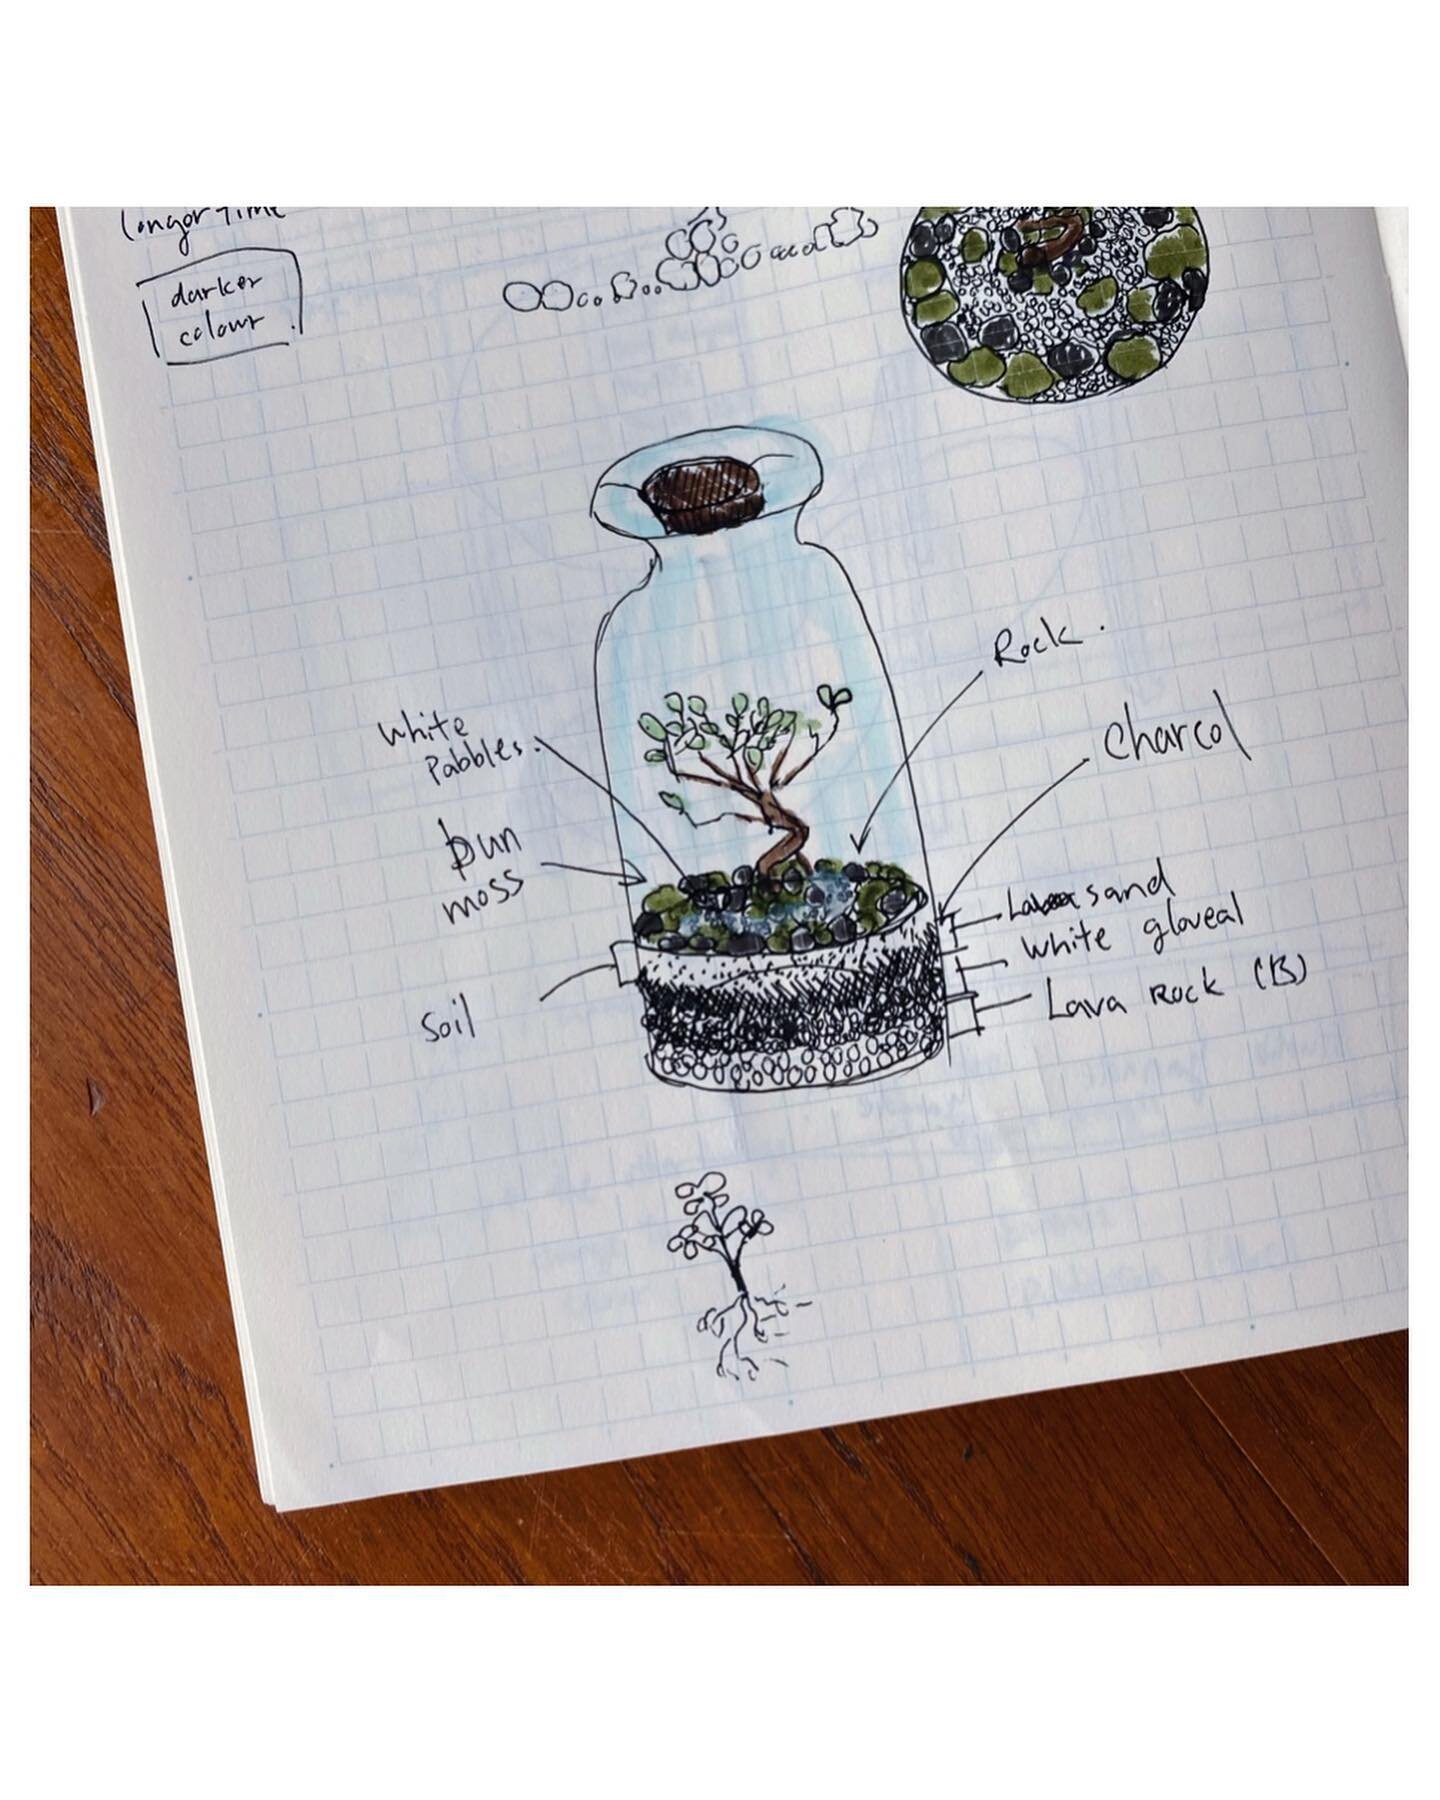 longor time
darker
colour
Rock.
white
Pabbles.
Charcol
bun
moss
sand
white gloveal
Lava Rock (B)
Soil